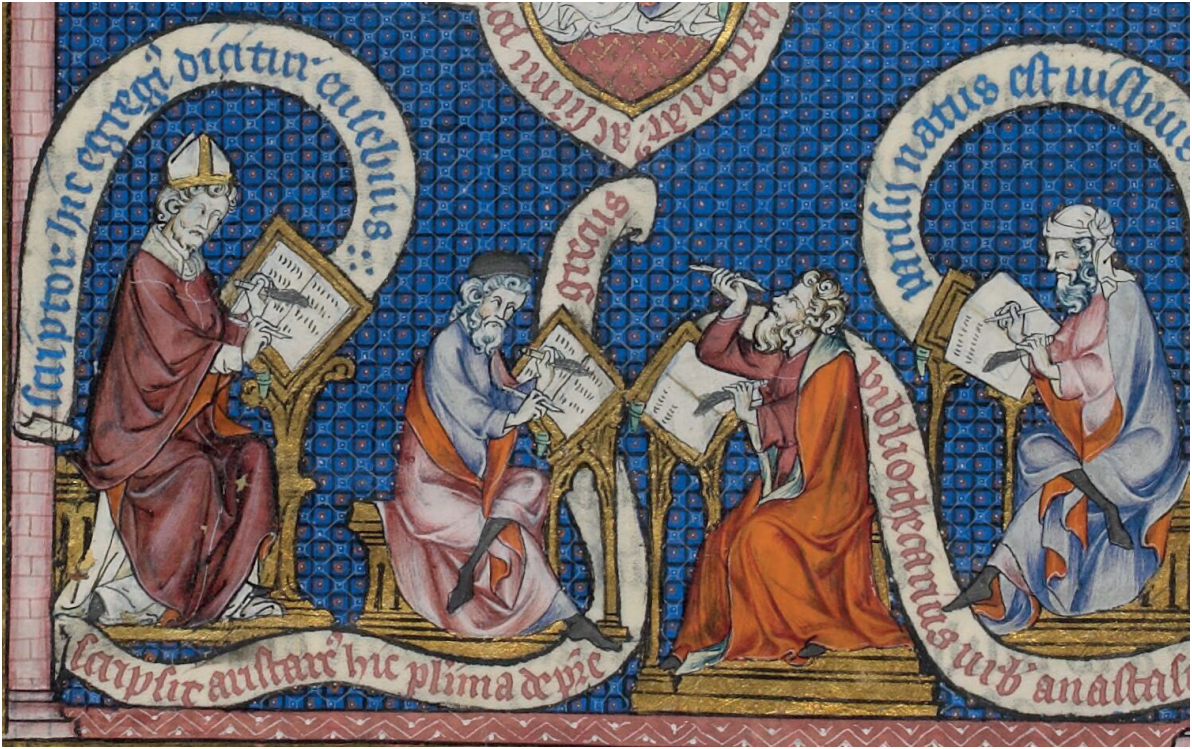 scriptor hic egregi' dicitur eusebius
scripsit aristarc' hic plima de pre
grecus
bibliothecarius urb' anastasi
parisii natus est uisbius